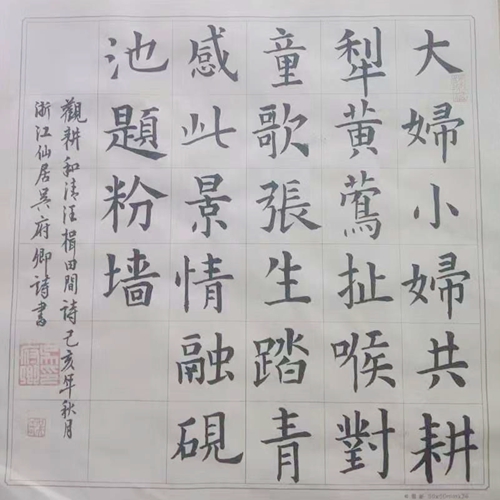 大婦小婦共耕
犁黃鶯扯喉對
童歌張生踏青
感此景情融硯
池題粉墙
觀耕和清汪楫田間詩己亥年秋月
浙江仙居吳府卿詩書